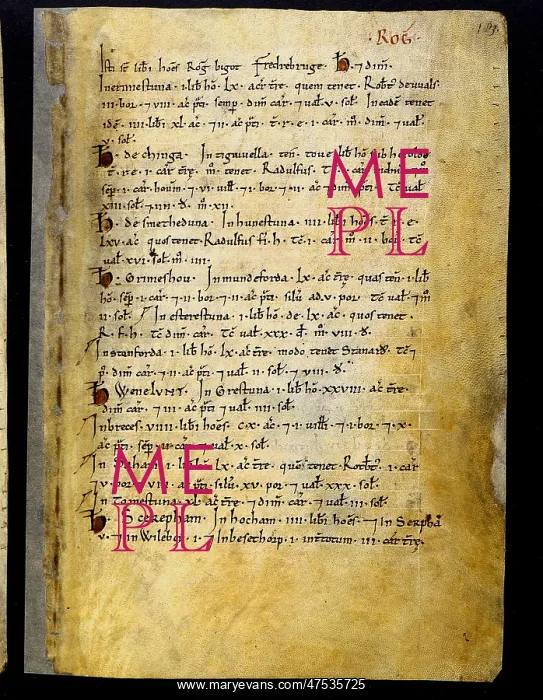 · Roḡ ·
189.
Isti sē libi hōes Roḡ bigot Fredrebruge · H̄ · 7 dim̄.
Inermestuna · i · lib hō · Lx · ac̄ tr̄e · quem tenet · Rotbt̄ de uuals ·
iii · bor · 7 viii · ac̄ p̄ti · semp̄ · dim̄ car̄ · 7 uat̄ · v · sot̄ · In eadē tenet
idē · iiii · libi xl · ac̄ · 7 ii · ac̄ p̄ti · t · r · e · i · car̄ · m̄ · dim̄ · 7 uat̄ ·
v · sot̄ ·
H̄ · de chinga · In tiguuella · ten̄ · toue lib hō
t · r · e · i · car̄ tr̄e · m̄ · tenet · Radulfus · T̄c
sēp̄ · i · car̄ houm̄ · 7 vi · uilt̄ · 7 i · bor · 7 ii · ac̄ uat̄
xiii · sot̄ · 7 iiii · đ · m̄ · xx
H̄ · de smetheduna · In hunestuna · iiii · libi hōes · t · r · e ·
Lxv · ac̄ quos tenet · Radulfus fi · h · Tc̄ · i · car̄ m̄ · ii · bor · tc̄
uat̄ · xvi · sot̄ · m̄ · iiii ·
H̄ · Grimeshou · In mundeforda · Lx · ac̄ tr̄e · quas ten̄ · i · lib
hō · sēp̄ · i · car̄ · 7 ii · bor · 7 ii · ac̄ p̄ti · silū ad · v · por · Tc̄ uat̄ · 7 m̄
ii · sot̄ · In esterestuna · i · lib hō · de · Lx · ac̄ · quos tenet ·
R · f · h · Tc̄ dim̄ · car̄ · Tc̄ uat̄ · xxx · đ · m̄ · viii · đ ·
In stanforda · i · lib hō · Lx · ac̄ tr̄e · modo tenet Stanard · tc̄ 7
p̄ · dim̄ car̄ · 7 ii · ac̄ p̄ti · 7 uat̄ · ii · sot̄ · 7 viii · đ ·
H̄ Wenelunt · In Grestuna · i · lib hō · xxviii · ac̄ tr̄e ·
dim̄ car̄ · 7 iii · ac̄ p̄ti 7 uat̄ · iiii · sot̄ ·
In breccs · viiii · libi hōes · cx · ac̄ · 7 i · uilt̄i · 7 i · bor · 7 · x ·
ac̄ p̄ti · sēp̄ · ii · car̄ · 7 uat̄ · x · sot̄ ·
In · i · Lx · ac̄ · tr̄e · quos tenet Rotbt̄ · i · car̄
7 v · bor · ac̄ p̄ti · silū · xv · por · 7 uat̄ · xxx · sot̄ ·
In Tomestuna · xl · ac̄ tr̄e · 7 dim̄ · car̄ · 7 uat̄ · iii · sot̄ ·
H̄ · Scerepham · In hocham · iiii · libi hōes · 7 In Serpha
v · 7 in Wilebei · i · 7 In besethorp · i · int̄totum · iii · car̄ tr̄e ·
ME
PL
ME
PL
www.maryevans.com/47535725